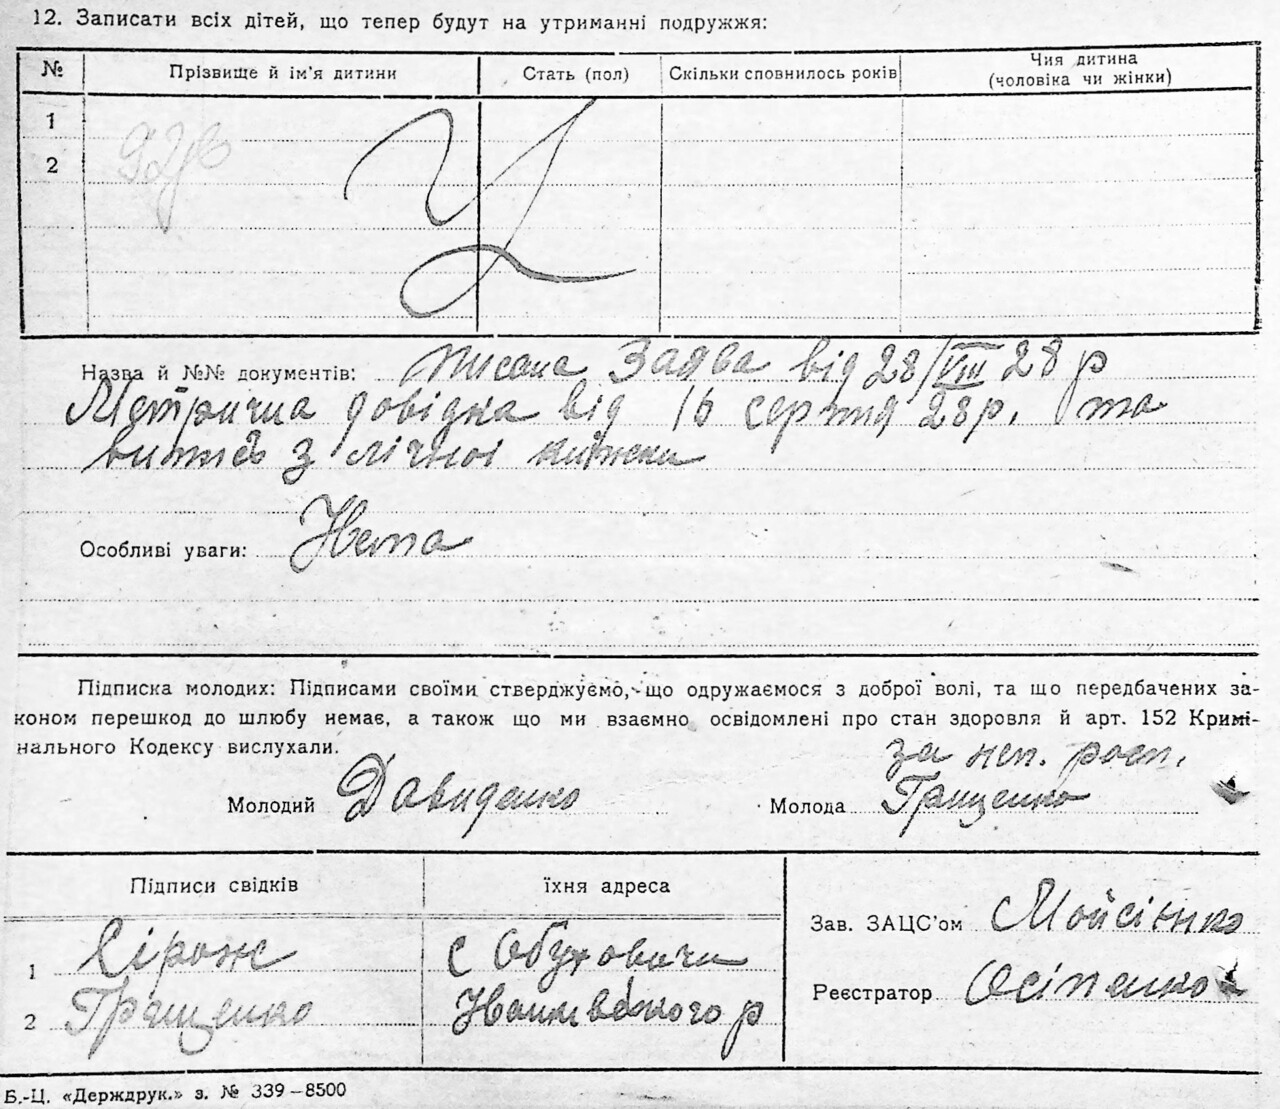 12. Записати всіх дітей, що тепер будут на утриманні подружжя:
№ Прізвище й ім'я дитини Стать (пол) Скільки сповнилось років Чия дитина (чоловіка чи жінки)
1
2
Назва й №№ документів: писана Заява від 28/VIII 28 р
Метрична довідка від 16 серпня 28 р. та
витяг з лічної книжки
Особливі уваги: Нема
Підписка молодих: Підписами своїми стверджуємо, що одружаємося з доброї волі, та що передбачених за-
коном перешкод до шлюбу немає, а також що ми взаємно освідомлені про стан здоровля й арт. 152 Кримі-
нального Кодексу вислухали.
за неп. розп.
Молодий Давиденко Молода Грищенко
Підписи свідків їхня адреса
Зав. ЗАЦС'ом Мойсієнко
1 с Обуховичи
Реєстратор Осіпенко
2 Грищенко Іванківського р
Б.-Ц. «Держдрук.» з. № 339–8500